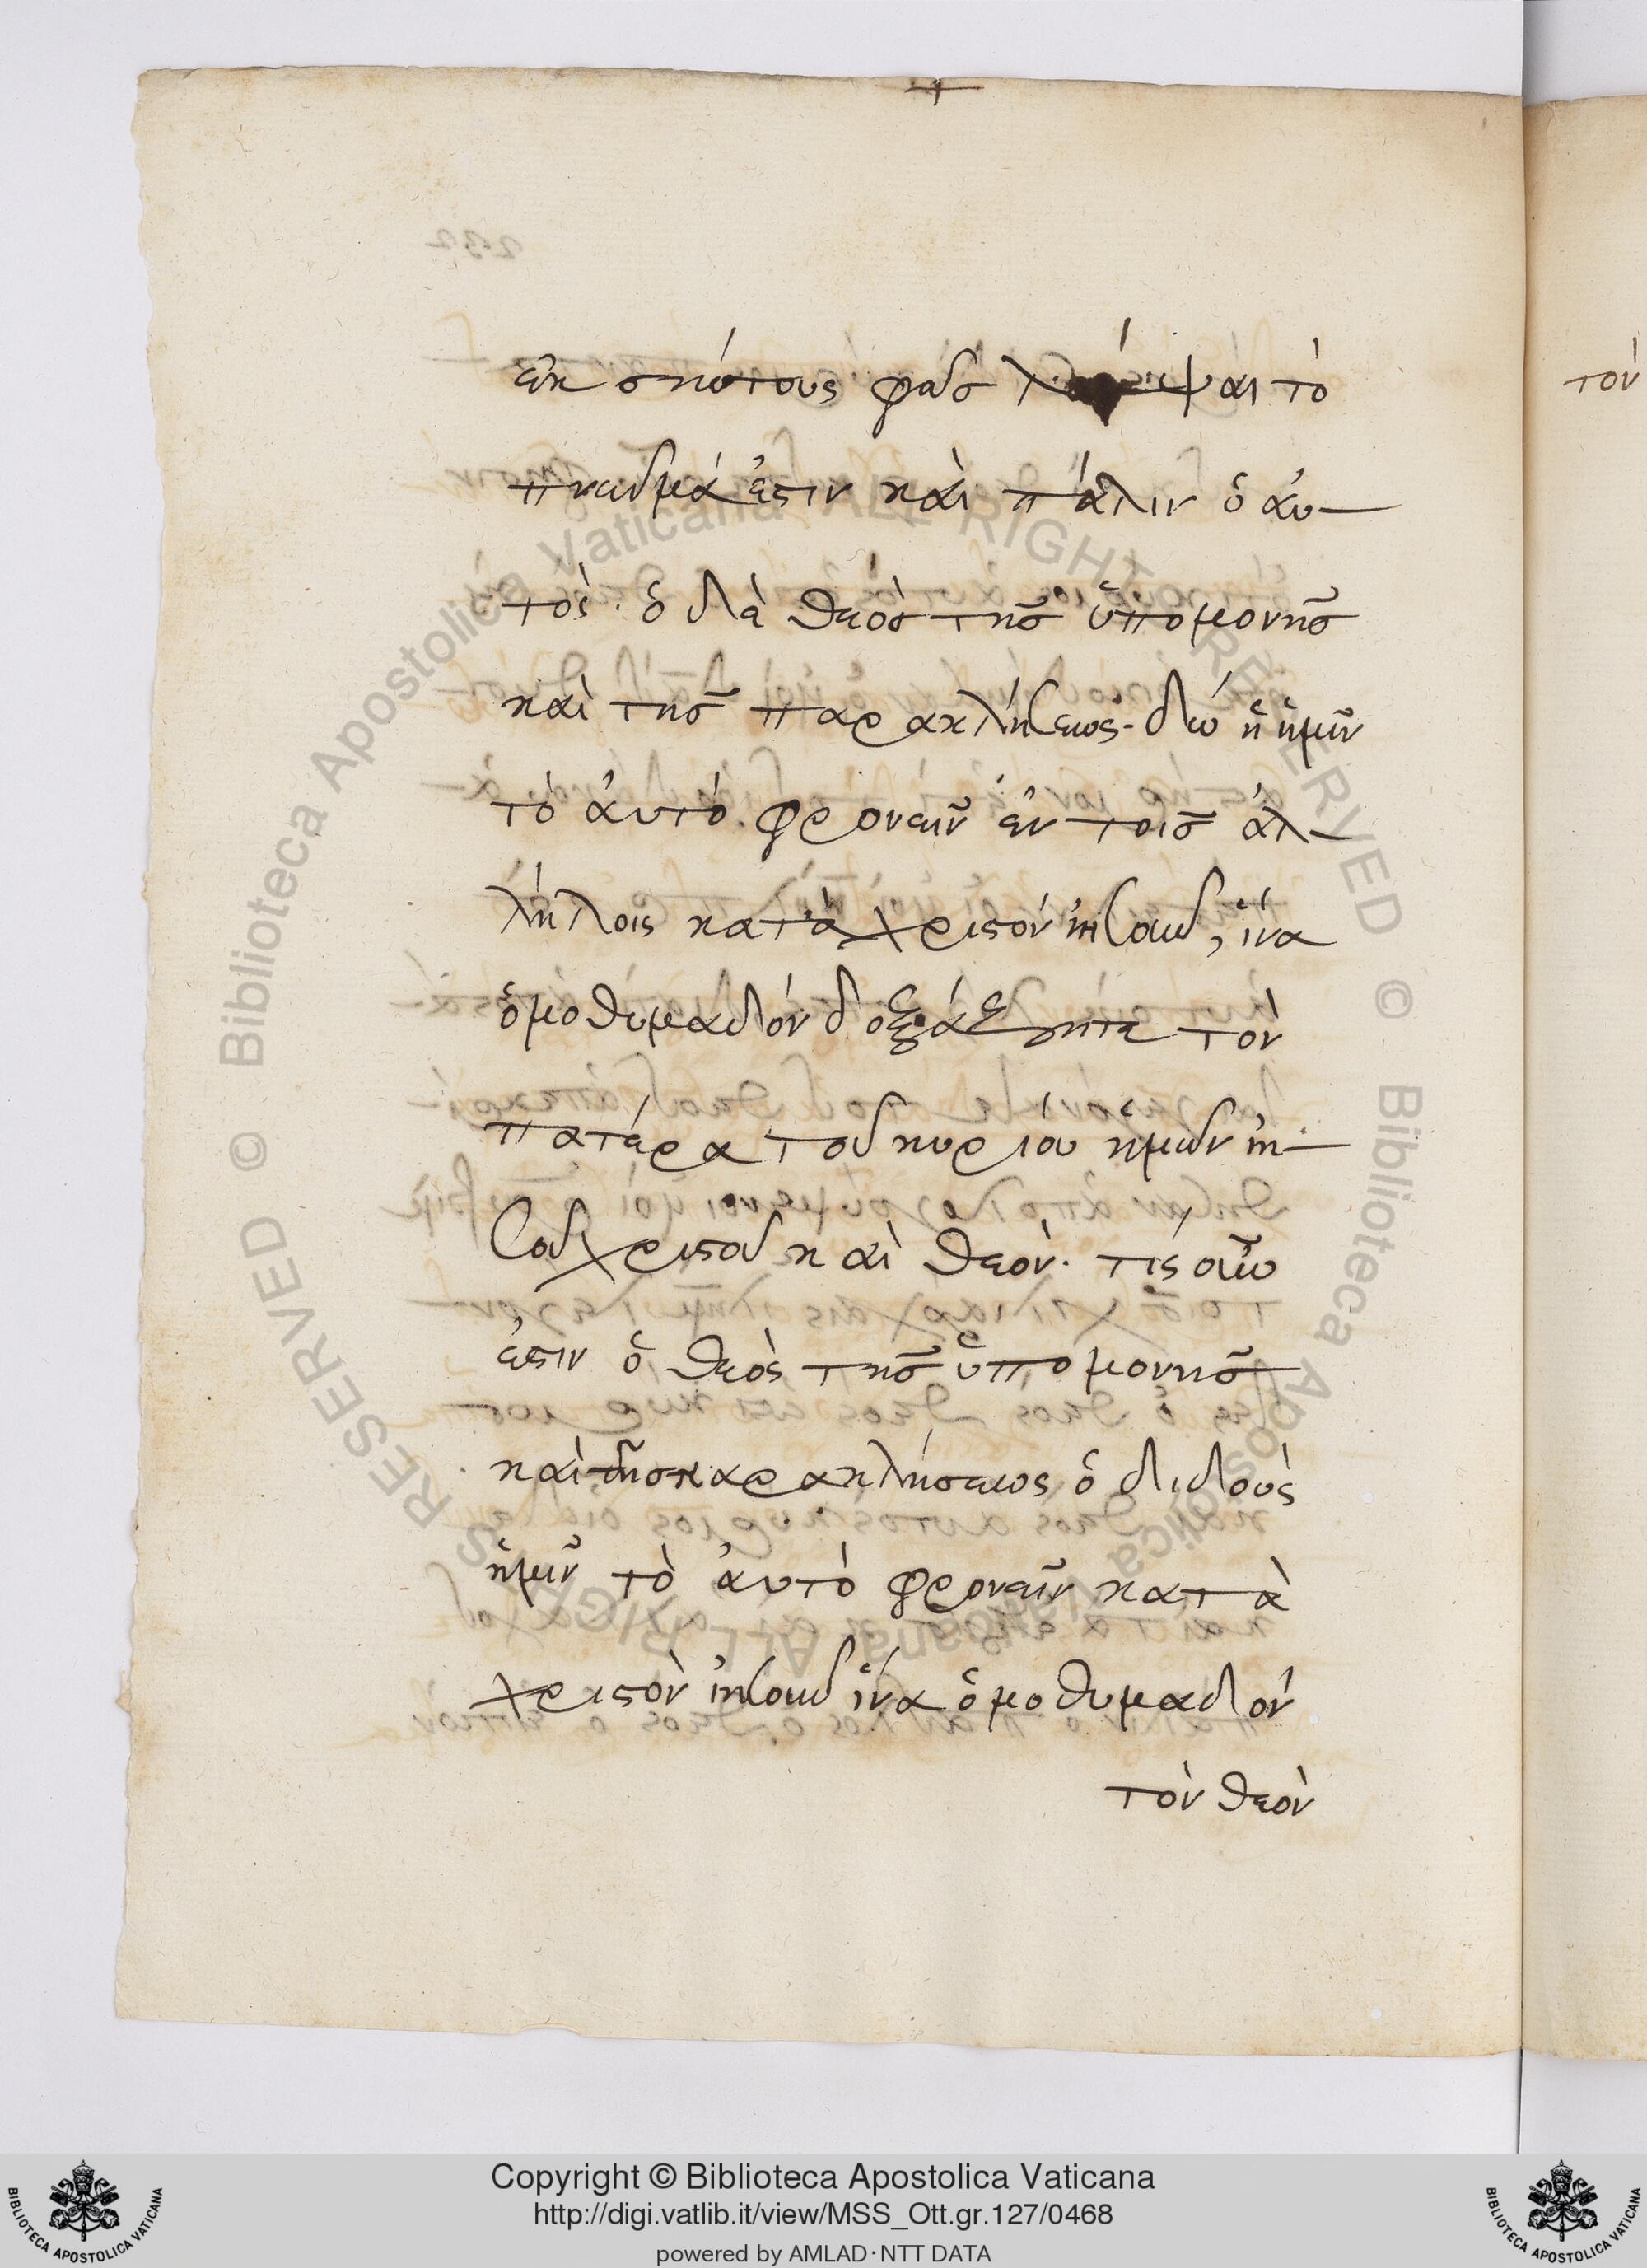 ἐκ σκότους φῶς λάμψαι τὸ
πνεῦμά ἐστιν καὶ πάλιν ὁ αὐ-
τός. ὁ δὲ θεὸς τῆς ὑπομονῆς
καὶ τῆς παρακλήσεως. δώη ἡμῖν
τὸ αὐτὸ φρονεῖν ἐν τοῖς ἀλ-
λήλοις κατὰ χριστὸν ἰησοῦν, ἵνα
ὁμοθυμαδὸν δοξάζητε τὸν
πατέρα τοῦ κυρίου ἡμῶν ἰη-
σοῦ χριστοῦ καὶ θεόν. τίς οὖν
ἐστιν ὁ θεὸς τῆς ὑπομονῆς
καὶ τῆς παρακλήσεως ὁ διδοὺς
ἡμῖν τὸ αὐτὸ φρονεῖν κατὰ
χριστὸν ἰησοῦν ἵνα ὁμοθυμαδὸν
τὸν θεὸν
τὸν
Copyright © Biblioteca Apostolica Vaticana
http://digi.vatlib.it/view/MSS_Ott.gr.127/0468
powered by AMLAD·NTT DATA
BIBLIOTECA APOSTOLICA VATICANA
BIBLIOTECA APOSTOLICA VATICANA
© Biblioteca Apostolica Vaticana ALL RIGHTS RESERVED
© Biblioteca Apostolica Vaticana ALL RIGHTS RESERVED